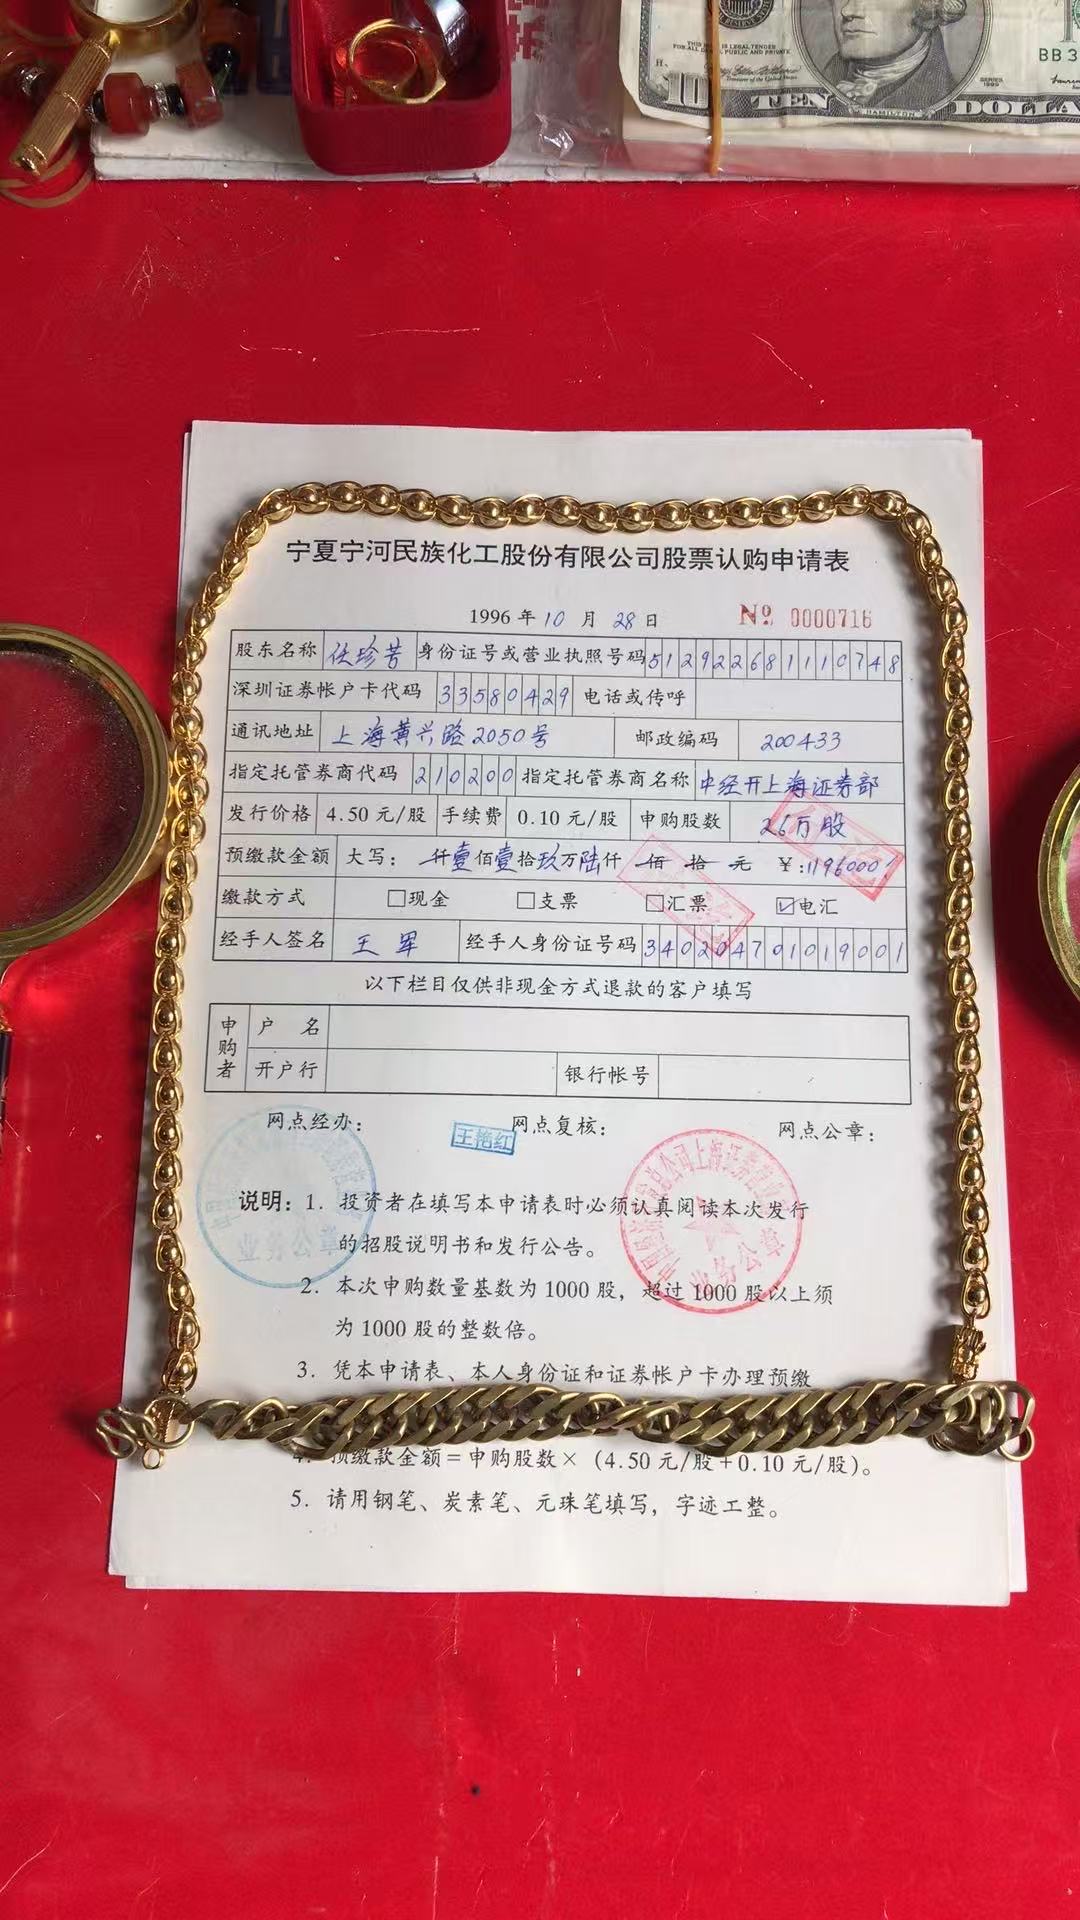 THIS NOTE IS LEGAL TENDER
FOR ALL DEBTS, PUBLIC AND PRIVATE
Treasurer of the United States.
SERIES
BB3
10 TEN HAMILTON DOLLA
宁夏宁河民族化工股份有限公司股票认购申请表
1996年10月28日 № 0000716
股东名称 任珍芳 身份证号或营业执照号码 512922681110748
深圳证券帐户卡代码 33580429 电话或传呼
通讯地址 上海黄兴路2050号 邮政编码 200433
指定托管券商代码 210200 指定托管券商名称 中经开上海证券部
发行价格 4.50元/股 手续费 0.10元/股 申购股数 26万股
预缴款金额 大写：仟壹佰壹拾玖万陆仟佰拾元 ￥:1196000
缴款方式 □现金 □支票 □汇票 ☑电汇
经手人签名 王军 经手人身份证号码 340204701019001
以下栏目仅供非现金方式退款的客户填写
申购者 户名
开户行 银行帐号
网点经办： 网点复核： 网点公章：
王艳红
说明：1．投资者在填写本申请表时必须认真阅读本次发行
的招股说明书和发行公告。
2．本次申购数量基数为1000股，超过1000股以上须
为1000股的整数倍。
3．凭本申请表、本人身份证和证券帐户卡办理预缴
4．预缴款金额＝申购股数×（4.50元/股＋0.10元/股）。
5．请用钢笔、炭素笔、元珠笔填写，字迹工整。
业务公章
业务公章